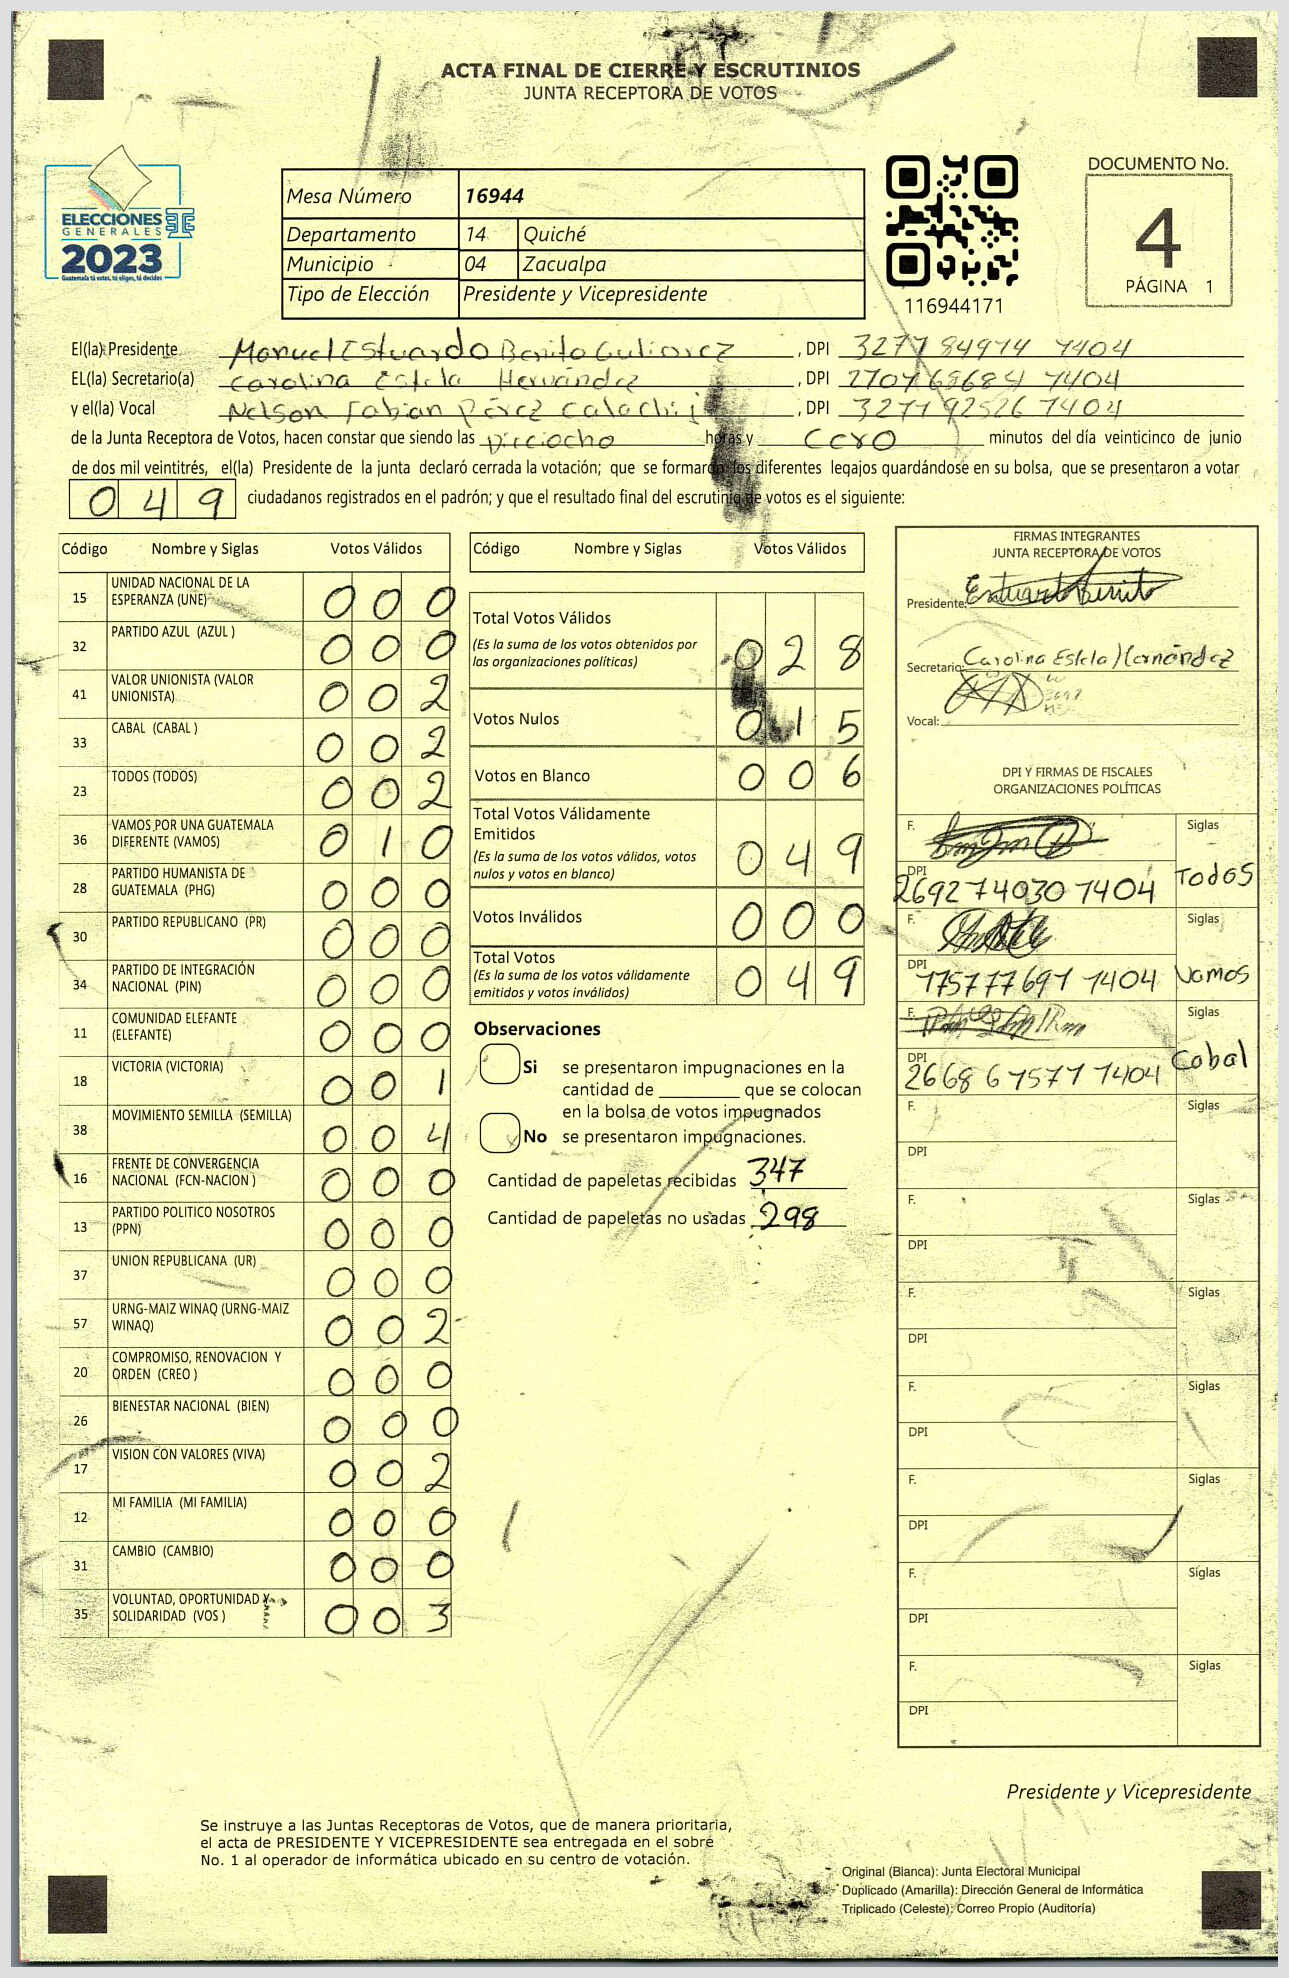 ACTA FINAL DE CIERRE Y ESCRUTINIOS
JUNTA RECEPTORA DE VOTOS
ELECCIONES
GENERALES
2023
Guatemala tú votas, tú eliges, tú decides
Mesa Número 16944
Departamento 14 Quiché
Municipio 04 Zacualpa
Tipo de Elección Presidente y Vicepresidente
116944171
DOCUMENTO No.
4
PÁGINA 1
El(la) Presidente Manuel Estuardo Benito Gutiérrez, DPI 3277 84974 1404
EL(la) Secretario(a) Carolina Estela Hernández, DPI 2707 68684 1404
y el(la) Vocal Nelson Fabian Pérez, DPI 3271 92526 1404
de la Junta Receptora de Votos, hacen constar que siendo las Dieciocho horas y Cero minutos del día veinticinco de junio
de dos mil veintitrés, el(la) Presidente de la junta declaró cerrada la votación; que se formaron los diferentes legajos guardándose en su bolsa, que se presentaron a votar
049 ciudadanos registrados en el padrón; y que el resultado final del escrutinio de votos es el siguiente:
Código Nombre y Siglas Votos Válidos
15 UNIDAD NACIONAL DE LA ESPERANZA (UNE) 000
32 PARTIDO AZUL (AZUL ) 000
41 VALOR UNIONISTA (VALOR UNIONISTA) 002
33 CABAL (CABAL ) 002
23 TODOS (TODOS) 002
36 VAMOS POR UNA GUATEMALA DIFERENTE (VAMOS) 010
28 PARTIDO HUMANISTA DE GUATEMALA (PHG) 000
30 PARTIDO REPUBLICANO (PR) 000
34 PARTIDO DE INTEGRACIÓN NACIONAL (PIN) 000
11 COMUNIDAD ELEFANTE (ELEFANTE) 000
18 VICTORIA (VICTORIA) 001
38 MOVIMIENTO SEMILLA (SEMILLA) 004
16 FRENTE DE CONVERGENCIA NACIONAL (FCN-NACION ) 000
13 PARTIDO POLITICO NOSOTROS (PPN) 000
37 UNION REPUBLICANA (UR) 000
57 URNG-MAIZ WINAQ (URNG-MAIZ WINAQ) 002
20 COMPROMISO, RENOVACION Y ORDEN (CREO ) 000
26 BIENESTAR NACIONAL (BIEN) 000
17 VISION CON VALORES (VIVA) 002
12 MI FAMILIA (MI FAMILIA) 000
31 CAMBIO (CAMBIO) 000
35 VOLUNTAD, OPORTUNIDAD Y SOLIDARIDAD (VOS ) 003
Código Nombre y Siglas Votos Válidos
Total Votos Válidos 028
(Es la suma de los votos obtenidos por
las organizaciones políticas)
Votos Nulos 015
Votos en Blanco 006
Total Votos Válidamente
Emitidos 049
(Es la suma de los votos válidos, votos
nulos y votos en blanco)
Votos Inválidos 000
Total Votos 049
(Es la suma de los votos válidamente
emitidos y votos inválidos)
Observaciones
Si se presentaron impugnaciones en la
cantidad de ________ que se colocan
en la bolsa de votos impugnados
No se presentaron impugnaciones.
Cantidad de papeletas recibidas 347
Cantidad de papeletas no usadas 298
FIRMAS INTEGRANTES
JUNTA RECEPTORA DE VOTOS
Presidente: Estuardo Benito
Secretario: Carolina Estela Hernández
Vocal:
DPI Y FIRMAS DE FISCALES
ORGANIZACIONES POLÍTICAS
F. Siglas
DPI 2692 74030 1404 Todos
F. Siglas
DPI 1757 77697 1404 Vamos
F. Siglas
DPI 2668 67577 1404 Cabal
F. Siglas
DPI
F. Siglas
DPI
F. Siglas
DPI
F. Siglas
DPI
F. Siglas
DPI
F. Siglas
DPI
F. Siglas
DPI
Presidente y Vicepresidente
Se instruye a las Juntas Receptoras de Votos, que de manera prioritaria,
el acta de PRESIDENTE Y VICEPRESIDENTE sea entregada en el sobre
No. 1 al operador de informática ubicado en su centro de votación.
Original (Blanca): Junta Electoral Municipal
Duplicado (Amarilla): Dirección General de Informática
Triplicado (Celeste): Correo Propio (Auditoría)